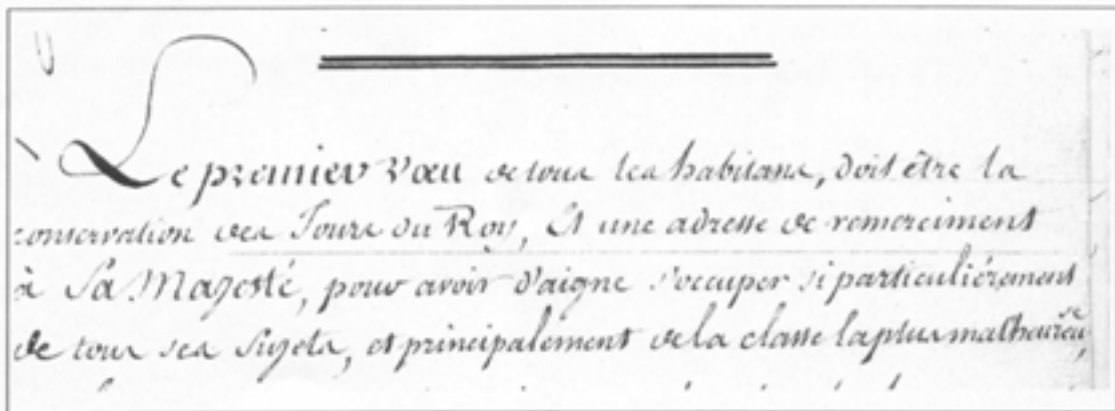 Le premier vœu de tous les habitans, doit être la
conservation des Jours du Roy, Et une adresse de remerciment
à Sa Majesté, pour avoir d'aigne s'occuper si particuliérement
de tous ses Sujets, et principalement de la classe la plus malheureuse,